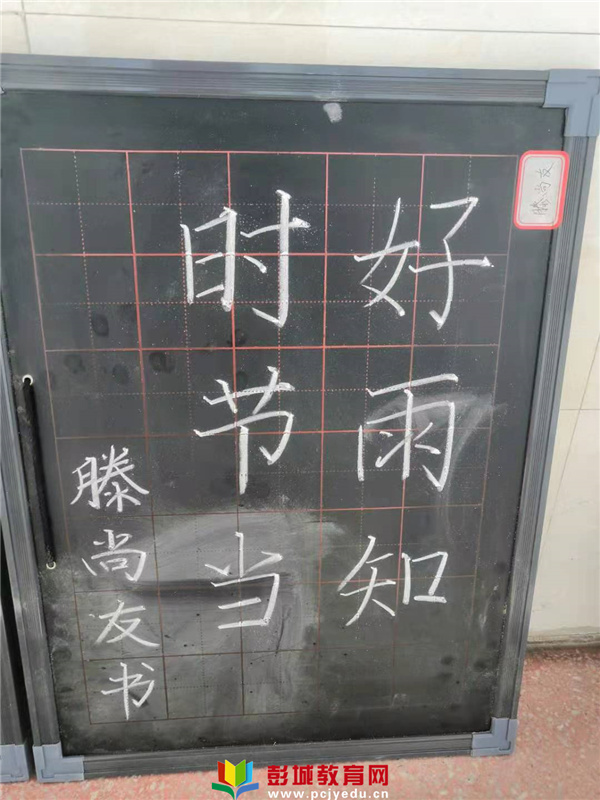 好雨知
时节当
滕尚友书
滕尚友
彭城教育网
www.pcjyedu.cn